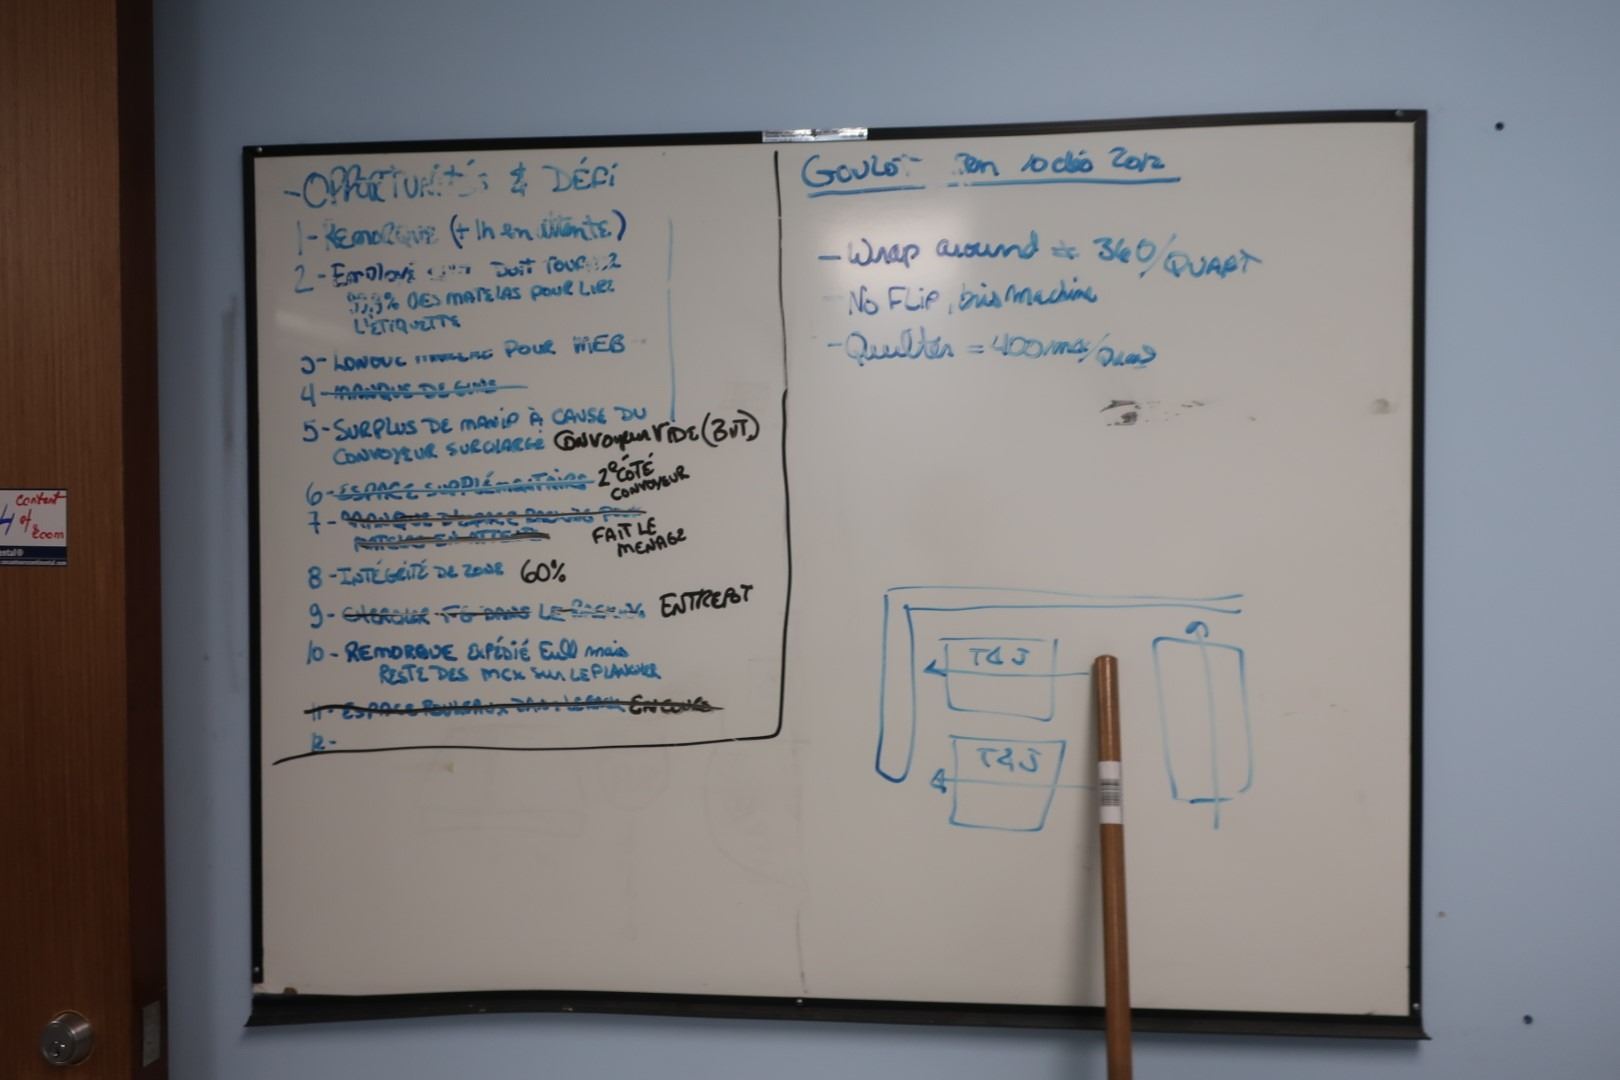 - OPPORTUNITÉS & DÉFI
1- REMORQUE (+1h en attente)
2- Employé DOIT TOURNER
99,9% DES MATELAS POUR LIRE
L'ÉTIQUETTE
3- LONGUE POUR MEB
4- MANQUE DE GUNS
5- SURPLUS DE MANIP À CAUSE DU
CONVOYEUR SURCHARGÉ CONVOYEUR VIDE (3 VT)
6- ESPACE SUPPLÉMENTAIRE 2e CÔTÉ
CONVOYEUR
7- MANQUE D'ESPACE POUR
MATELAS EN ATTENTE FAIT LE
MENAGE
8- INTÉGRITÉ DE ZONE 60%
9- CHERCHER DANS LE RACKING ENTREPOT
10- REMORQUE EXPÉDIÉ Full mais
RESTE DES MCX SUR LE PLANCHER
11- ESPACE ROULEAUX DANS EN COURS
12-
GOULOT 10 déc 2012
- Wrap around = 360/QUART
- No FLIP, bris machine
- Quilter = 400 mcx/Quart
T&J
T&J
content
of
room